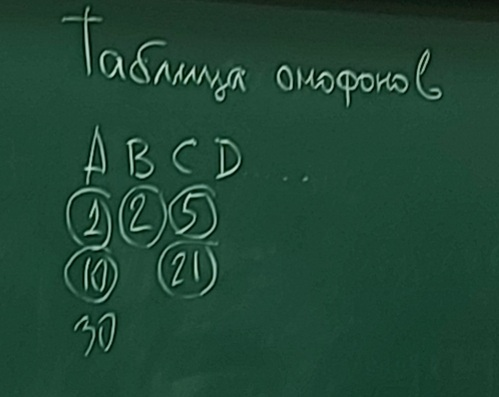 Таблица омофонов
A B C D ....
1 2 5
10 21
30